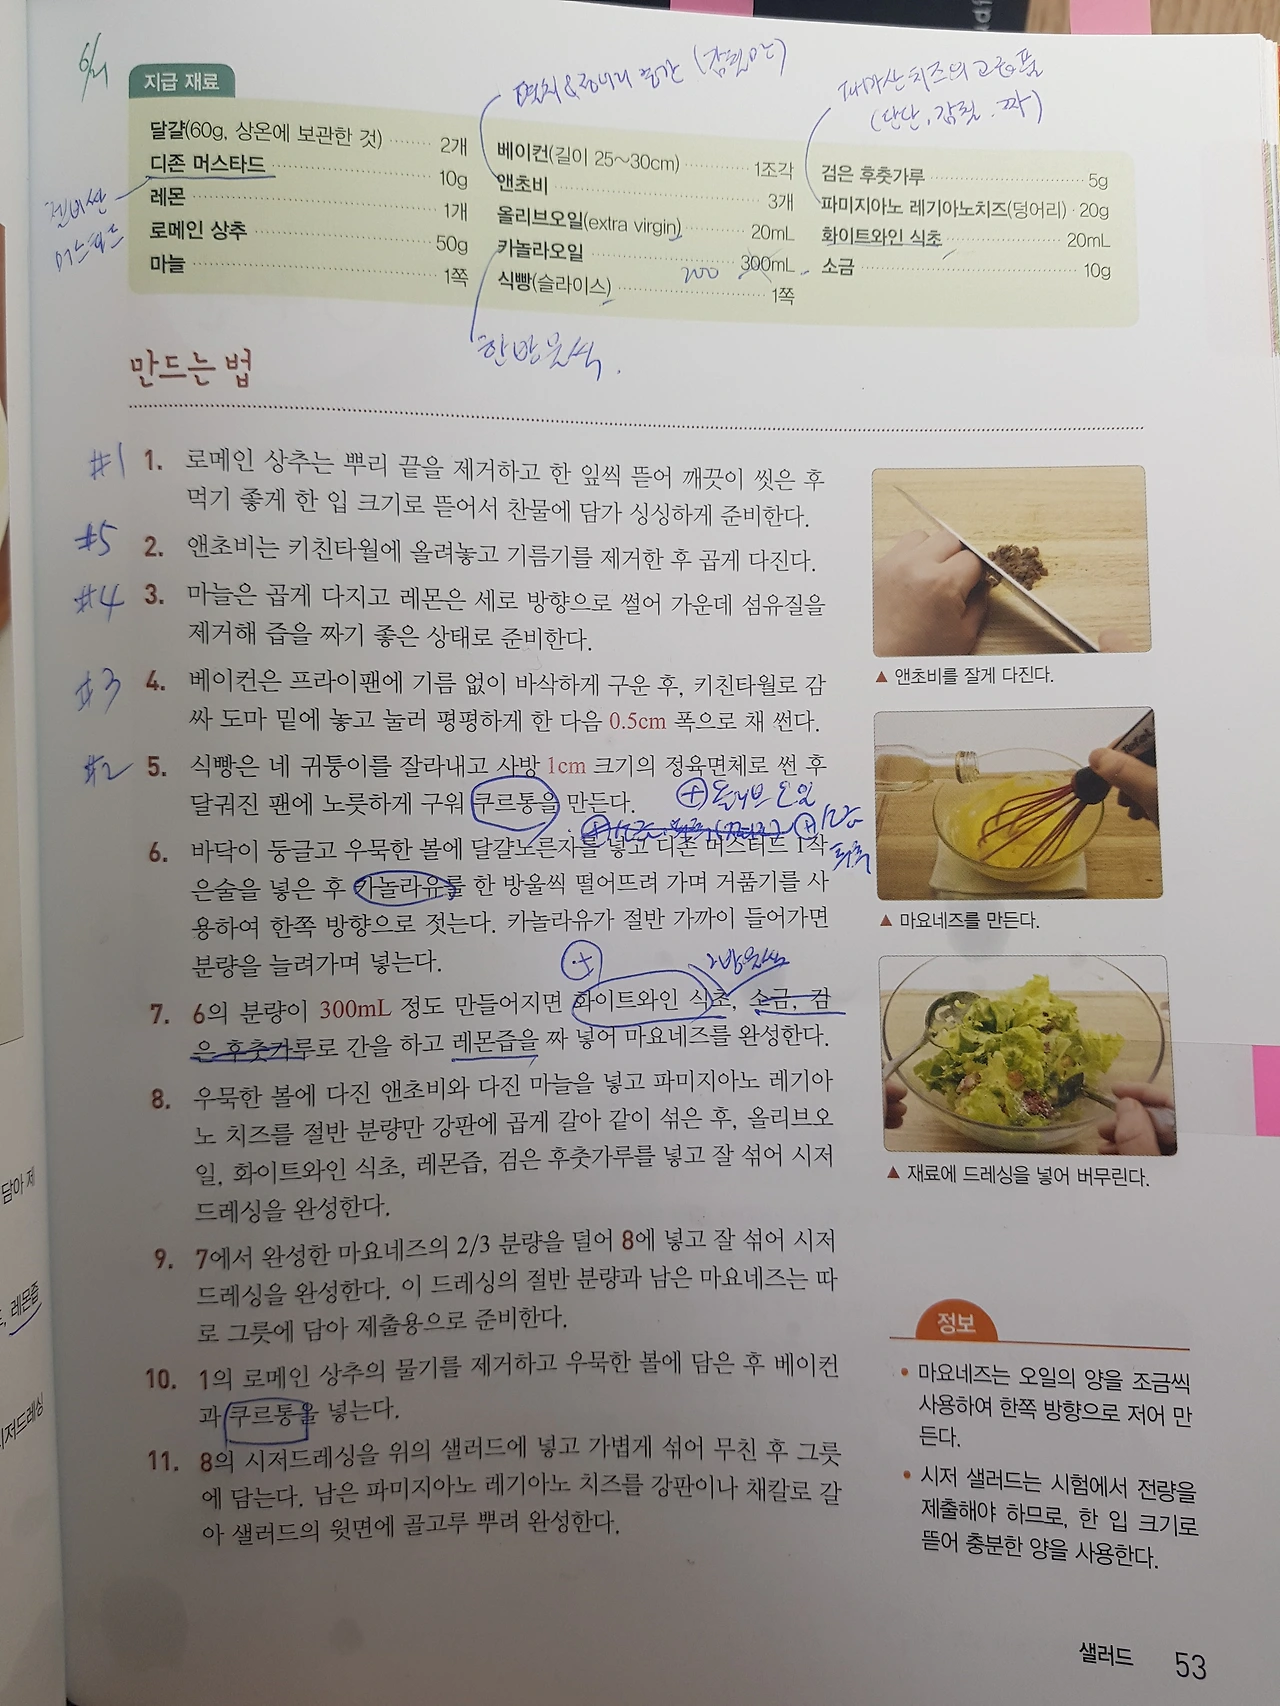 6/21
지급 재료
멸치&정어리 중간 (감칠맛)
파마산치즈의 고급품
(단단, 감칠, 짝)
달걀(60g, 상온에 보관한 것) ········ 2개
디존 머스타드 ········ 10g
레몬 ········ 1개
로메인 상추 ········ 50g
마늘 ········ 1쪽
머스타드
베이컨(길이 25~30cm) ········ 1조각
앤초비 ········ 3개
올리브오일(extra virgin) ········ 20mL
카놀라오일 ········ 200 300mL
식빵(슬라이스) ········ 1쪽
한방울씩.
검은 후춧가루 ········ 5g
파미지아노 레기아노치즈(덩어리) · 20g
화이트와인 식초 ········ 20mL
소금 ········ 10g
만드는 법
#1 1. 로메인 상추는 뿌리 끝을 제거하고 한 잎씩 뜯어 깨끗이 씻은 후
먹기 좋게 한 입 크기로 뜯어서 찬물에 담가 싱싱하게 준비한다.
#5 2. 앤초비는 키친타월에 올려놓고 기름기를 제거한 후 곱게 다진다.
#4 3. 마늘은 곱게 다지고 레몬은 세로 방향으로 썰어 가운데 섬유질을
제거해 즙을 짜기 좋은 상태로 준비한다.
#3 4. 베이컨은 프라이팬에 기름 없이 바삭하게 구운 후, 키친타월로 감
싸 도마 밑에 놓고 눌러 평평하게 한 다음 0.5cm 폭으로 채 썬다.
#2 5. 식빵은 네 귀퉁이를 잘라내고 사방 1cm 크기의 정육면체로 썬 후
달궈진 팬에 노릇하게 구워 쿠르통을 만든다.
+ 올리브 오일
6. 바닥이 둥글고 우묵한 볼에 달걀노른자를 넣고 디존 머스터드 1작
은술을 넣은 후 카놀라유를 한 방울씩 떨어뜨려 가며 거품기를 사
용하여 한쪽 방향으로 젓는다. 카놀라유가 절반 가까이 들어가면
분량을 늘려가며 넣는다.
+
2방울씩
7. 6의 분량이 300mL 정도 만들어지면 화이트와인 식초, 소금, 검
은 후춧가루로 간을 하고 레몬즙을 짜 넣어 마요네즈를 완성한다.
8. 우묵한 볼에 다진 앤초비와 다진 마늘을 넣고 파미지아노 레기아
노 치즈를 절반 분량만 강판에 곱게 갈아 같이 섞은 후, 올리브오
일, 화이트와인 식초, 레몬즙, 검은 후춧가루를 넣고 잘 섞어 시저
드레싱을 완성한다.
9. 7에서 완성한 마요네즈의 2/3 분량을 덜어 8에 넣고 잘 섞어 시저
드레싱을 완성한다. 이 드레싱의 절반 분량과 남은 마요네즈는 따
로 그릇에 담아 제출용으로 준비한다.
10. 1의 로메인 상추의 물기를 제거하고 우묵한 볼에 담은 후 베이컨
과 쿠르통을 넣는다.
11. 8의 시저드레싱을 위의 샐러드에 넣고 가볍게 섞어 무친 후 그릇
에 담는다. 남은 파미지아노 레기아노 치즈를 강판이나 채칼로 갈
아 샐러드의 윗면에 골고루 뿌려 완성한다.
▲ 앤초비를 잘게 다진다.
▲ 마요네즈를 만든다.
▲ 재료에 드레싱을 넣어 버무린다.
정보
• 마요네즈는 오일의 양을 조금씩
사용하여 한쪽 방향으로 저어 만
든다.
• 시저 샐러드는 시험에서 전량을
제출해야 하므로, 한 입 크기로
뜯어 충분한 양을 사용한다.
담아 제
레몬즙
시저드레싱
샐러드 53